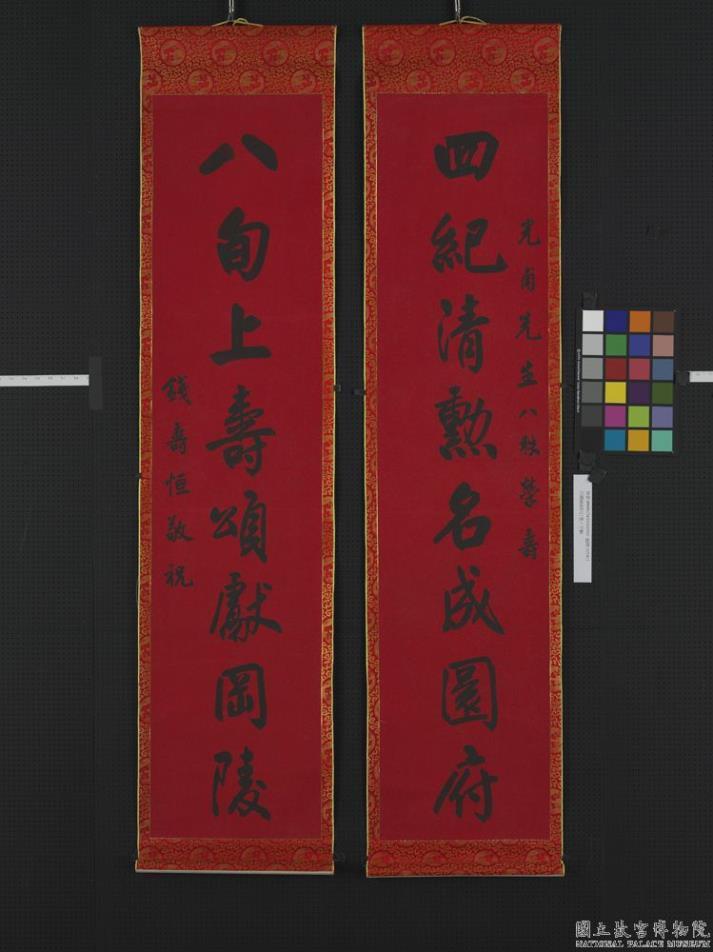 光甫先生八秩榮壽
四紀清勲名成圜府
八旬上壽頌獻岡陵
錢壽恒敬祝
國立故宮博物院
NATIONAL PALACE MUSEUM